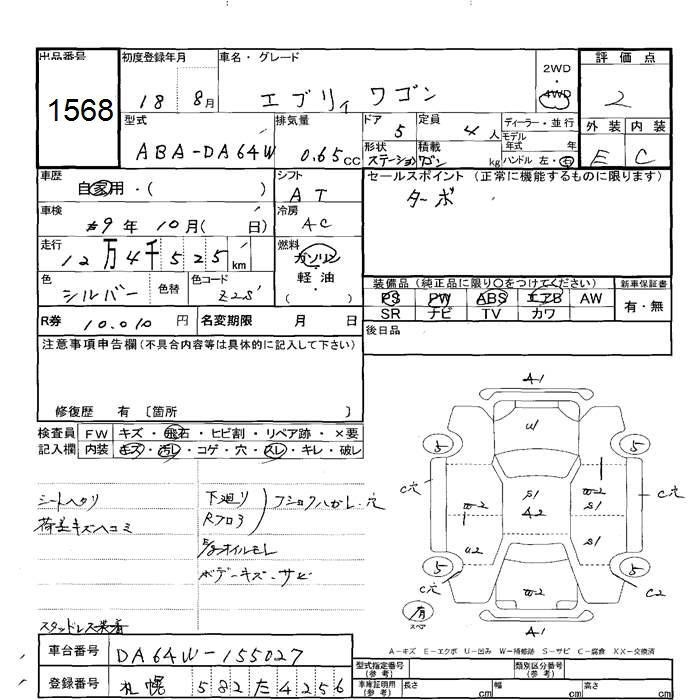 出品番号
1568
初度登録年月
18 8月
車名・グレード
エブリィ ワゴン
2WD
4WD
評価点
2
型式
ABA-DA64W
排気量
0.65cc
ドア
5
定員
4人
ディーラー・並行
モデル年式 年
形状
ステーションワゴン
積載
kg
ハンドル 左・右
外装 内装
E C
車歴
自家用・( )
シフト
AT
セールスポイント (正常に機能するものに限ります)
ターボ
車検
29年 10月( 日)
冷房
AC
走行
12万4千525km
燃料
ガソリン
軽・油
( )
色
シルバー
色替
色コード
Z2S
装備品 (純正品に限り○をつけてください)
新車保証書
PS PW ABS エアB AW
有・無
SR ナビ TV カワ
R券 10,010円
名変期限 月 日
後日品
注意事項申告欄 (不具合内容等は具体的に記入して下さい)
修復歴 有 〔箇所 〕
検査員記入欄
FW キズ・飛石・ヒビ割・リペア跡・×要
内装 キズ・汚レ・コゲ・穴・スレ・キレ・破レ
シートヘタリ
荷差キズヘコミ
下廻り
Rフロア
フショクハガレ.穴
E/gオイルモレ
ボデーキズ・サビ
スタッドレス装着
A1
U1
5
5
C穴
C穴
W2
1
S1
42
1
W2
S1
U2
S1
5
5
C穴
W2
C2
有
スペア
A1
A-キズ E-エクボ U-凹み W-補修跡 S-サビ C-腐食 XX-交換済
車台番号
DA64W-155027
登録番号
札幌 582 た 4256
型式指定番号
(参考)
類別区分番号
(参考)
車庫証明用
(参考)
長さ cm
幅 cm
高さ cm